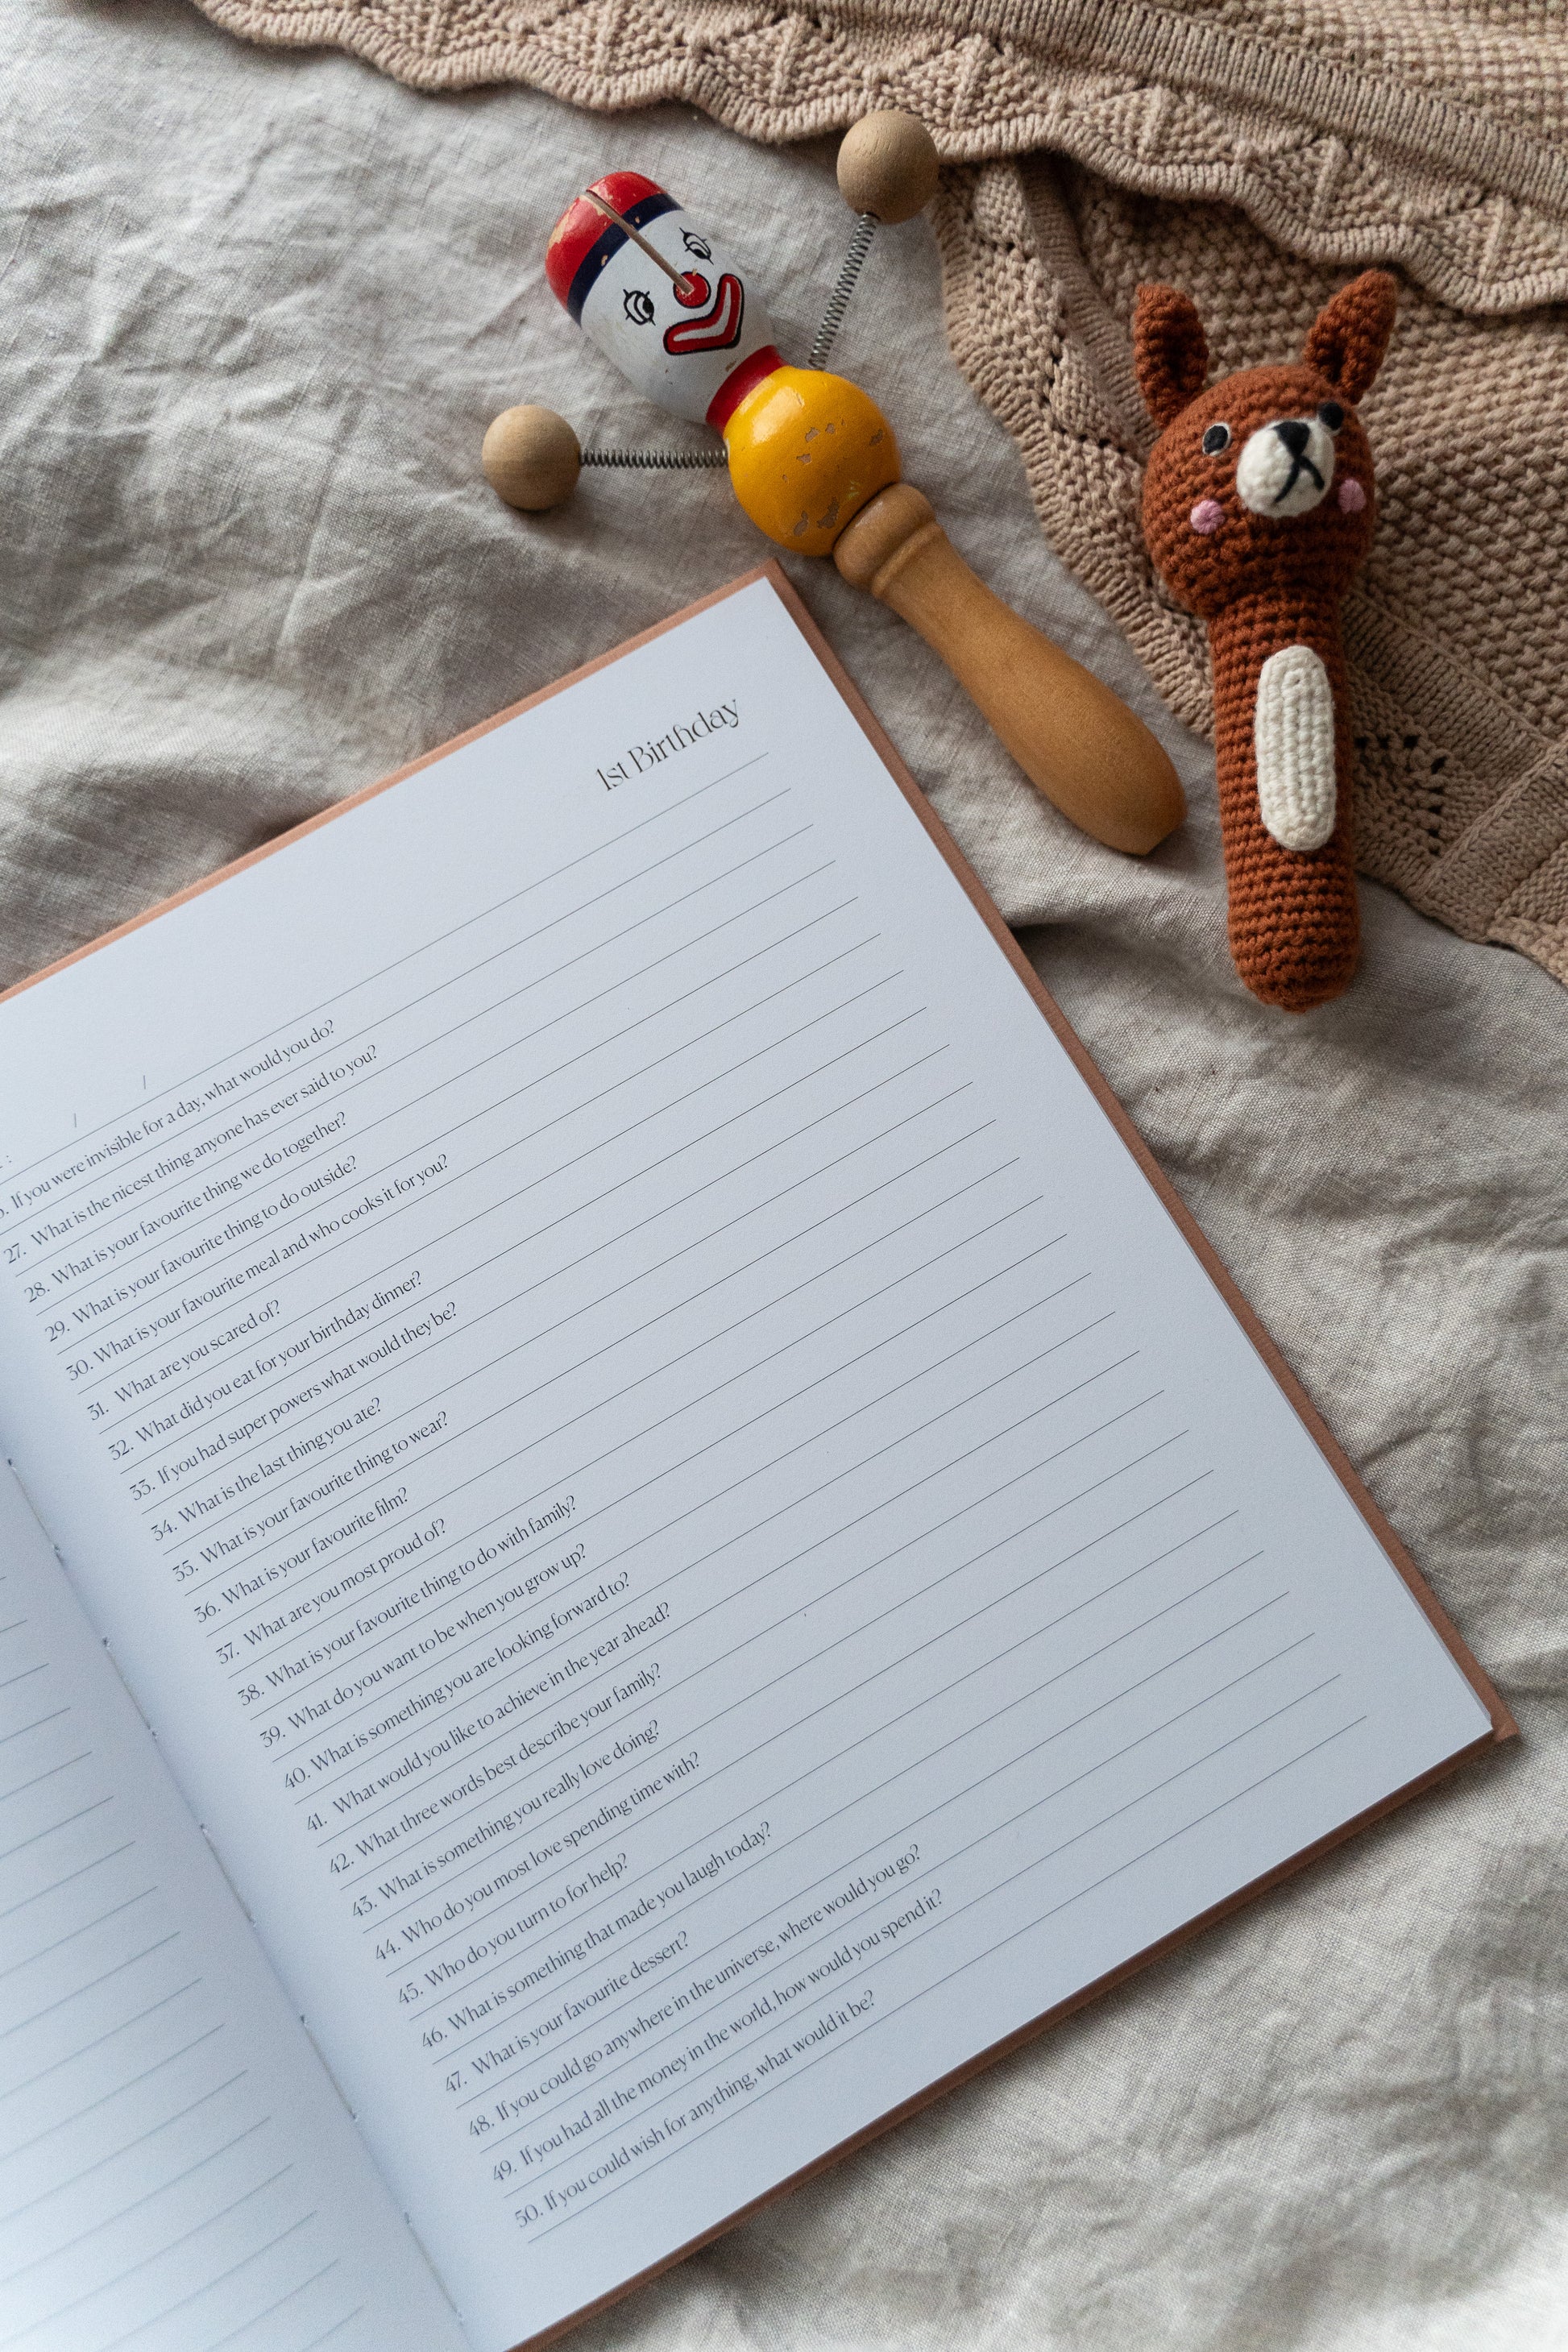 1st Birthday
:
If you were invisible for a day, what would you do?
27. What is the nicest thing anyone has ever said to you?
28. What is your favourite thing we do together?
29. What is your favourite thing to do outside?
30. What is your favourite meal and who cooks it for you?
31. What are you scared of?
32. What did you eat for your birthday dinner?
33. If you had super powers what would they be?
34. What is the last thing you ate?
35. What is your favourite thing to wear?
36. What is your favourite film?
37. What are you most proud of?
38. What is your favourite thing to do with family?
39. What do you want to be when you grow up?
40. What is something you are looking forward to?
41. What would you like to achieve in the year ahead?
42. What three words best describe your family?
43. What is something you really love doing?
44. Who do you most love spending time with?
45. Who do you turn to for help?
46. What is something that made you laugh today?
47. What is your favourite dessert?
48. If you could go anywhere in the universe, where would you go?
49. If you had all the money in the world, how would you spend it?
50. If you could wish for anything, what would it be?